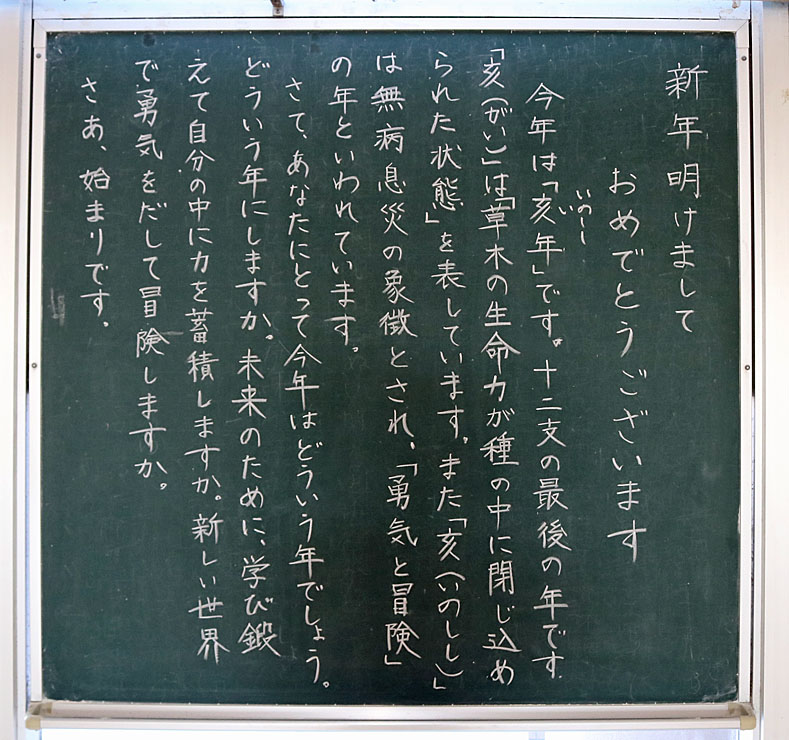 新年明けまして
おめでとうございます
今年は「亥年」です。十二支の最後の年です
いのしし
い
「亥（がい）」は「草木の生命力が種の中に閉じ込め
られた状態」を表しています。また「亥（いのしし）」
は無病息災の象徴とされ、「勇気と冒険」
の年といわれています。
さて、あなたにとって今年はどういう年でしょう。
どういう年にしますか。未来のために、学び鍛
えて自分の中に力を蓄積しますか。新しい世界
で勇気をだして冒険しますか。
さあ、始まりです。